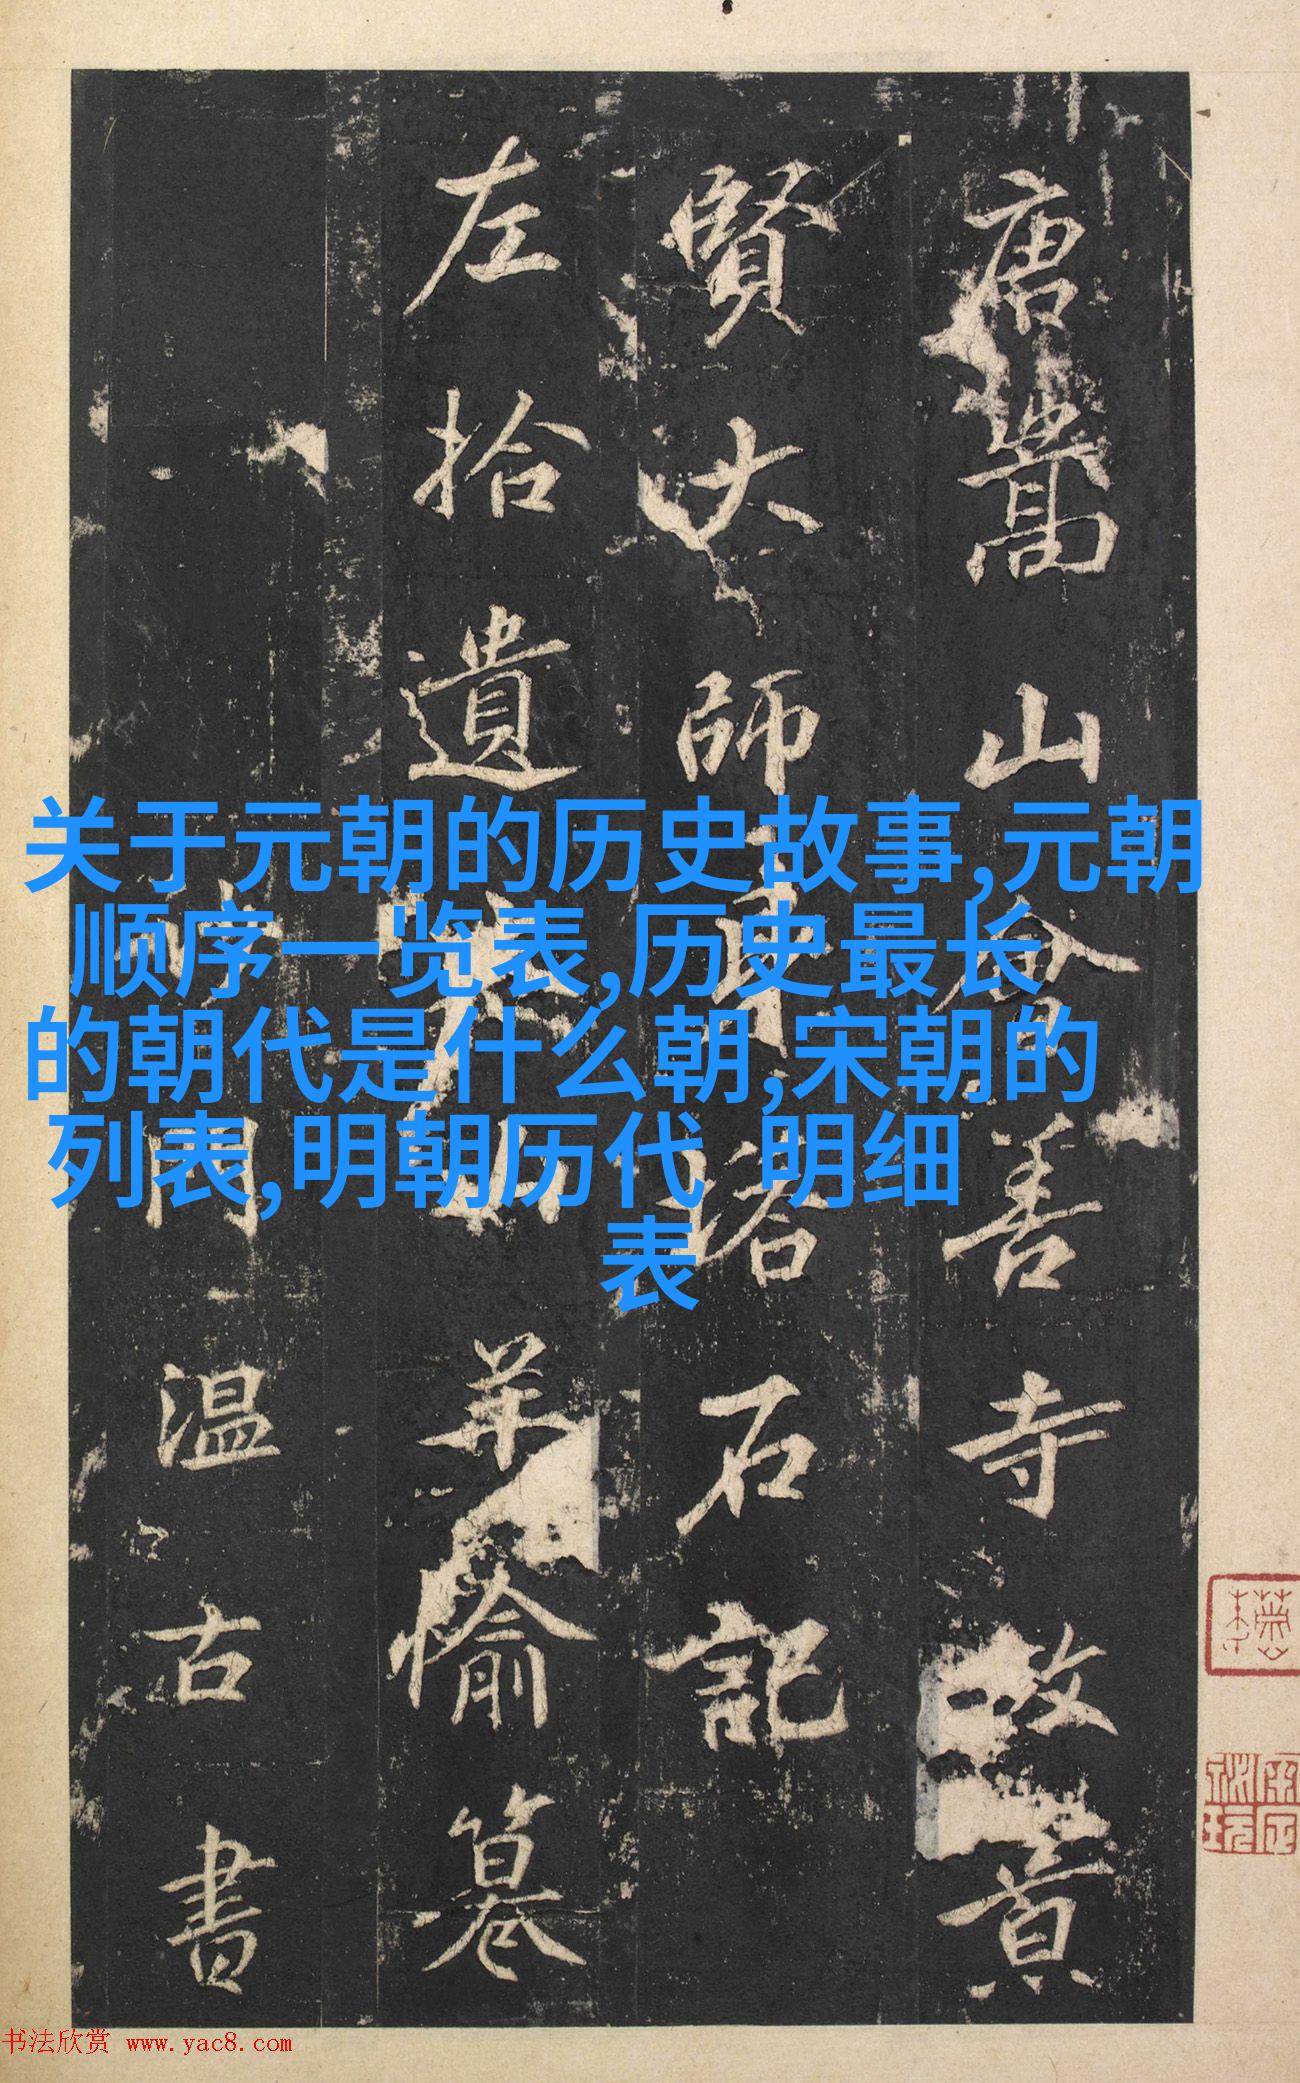 唐嵩山會善寺故景
賢大師身塔石記
左拾遺羊愉
門溫古書
关于元朝的历史故事,元朝
顺序一览表,历史最长
的朝代是什么朝,宋朝的
列表,明朝历代 明细
表
书法欣赏 www.yac8.com